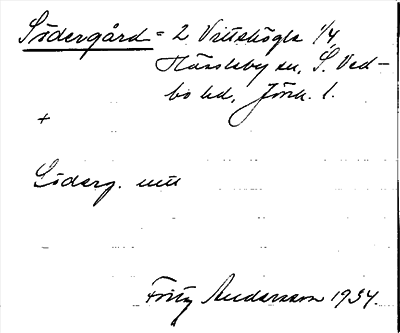 Södergård = 2 Vittskögla 1/4
Hässleby sn, S. Ved-
bo hd, Jönk. l.
+
Söderg. mtl
Fritz Andersson 1934.